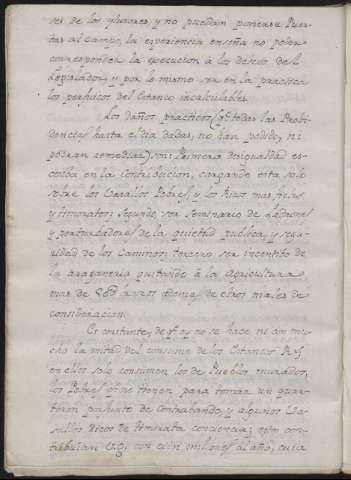 res de los ybores, y no puedan ponerse Puer-
tas al Campo, la experiencia enseña no poder
corresponder la execucion à los deseos del
Legislador, y por lo mismo ser en la practica
los perjuicios del Estanco incalculables.
Los daños practicos (qe todas las Probi-
dencias hasta el dia dadas, no han podido, ni
podran remediar) son: Primero desigualdad es-
condida en la Contribucion, cargando esta solo
sobre los Vasallos Pobres, y los Ricos mas fieles
y timoratos; Segundo ser Seminario de Ladrones
y perturbadores de la quietud publica, y segu-
ridad de los Caminos; tercero ser incentibo de
la araganeria quitando à la Agricultura
mas de brazos ademas de otros males de
consideracion.
Es constante, de qe ay no se hace ni con mu-
cho la mitad del consumo de los Estancos Rs.
en ellos solo consumen los de Pueblos murados,
los Pobres qe no tienen para tomar un quar-
teron por junto de Contrabando, y algunos Va-
sallos Ricos de timorata conciencia; estos con-
tribuian con cien millones al año, cuia